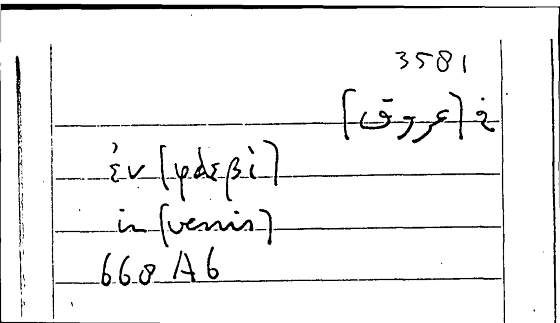 3581
في [عروق]
ἐν [φλεβὶ]
in [venis]
668 A6